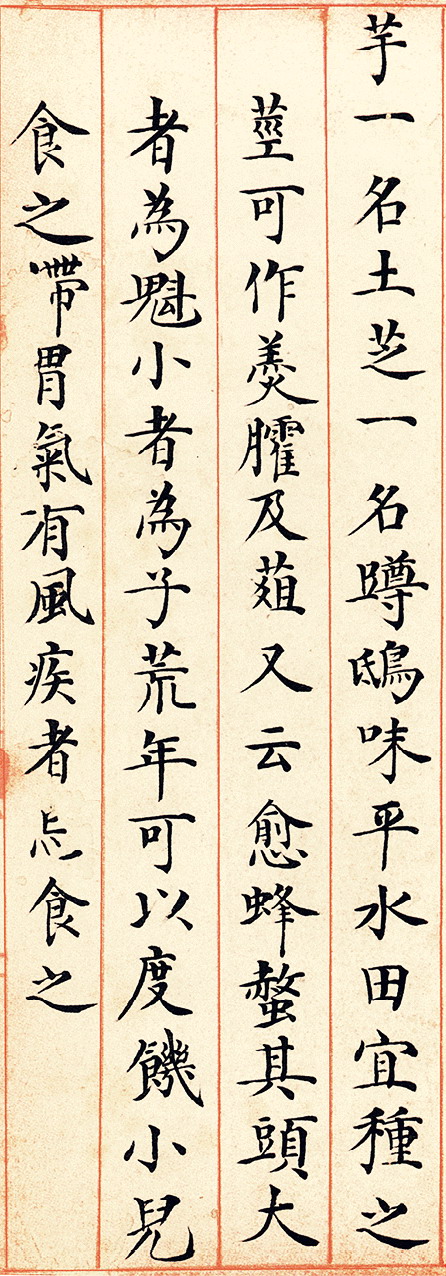 芋一名土芝一名蹲鴟味平水田宜種之
莖可作羹臛及葅又云愈蜂螫其頭大
者為魁小者為子荒年可以度饑小兒
食之滯胃氣有風疾者忌食之